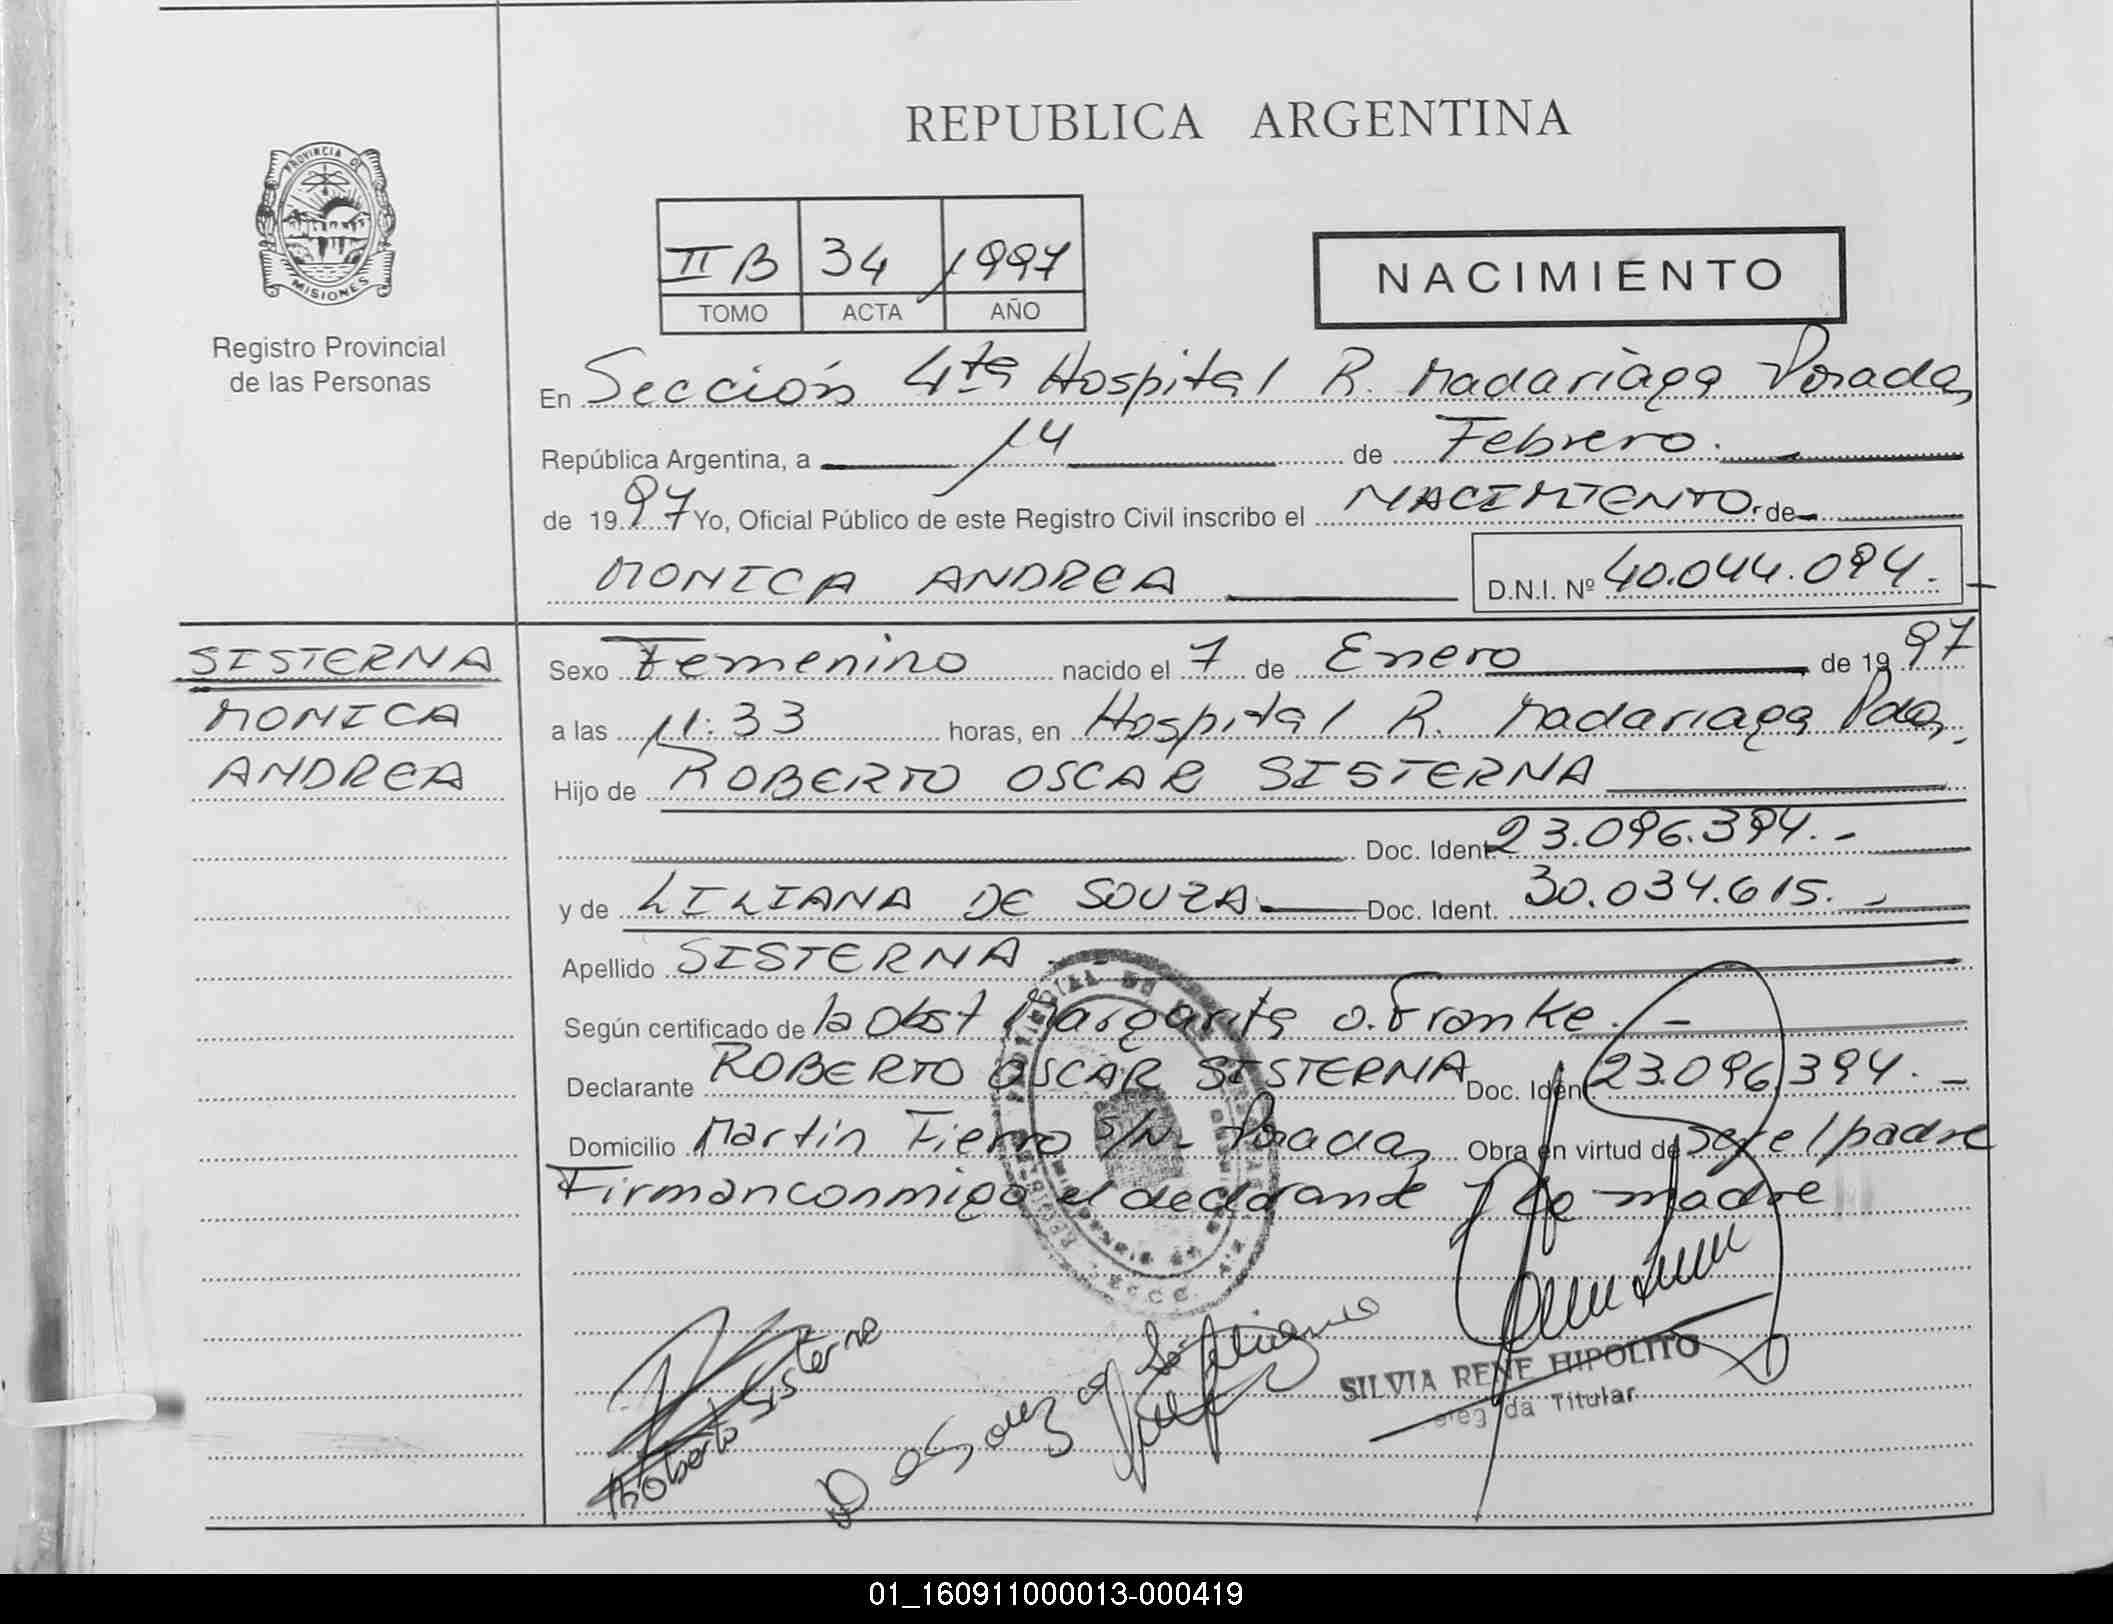 REPUBLICA ARGENTINA
PROVINCIA DE
MISIONES
Registro Provincial
de las Personas
II B 34 1997
TOMO ACTA AÑO
NACIMIENTO
En Sección 4ta Hospital R. Madariaga Posadas
República Argentina, a 14 de Febrero.
de 1997 Yo, Oficial Público de este Registro Civil inscribo el NACIMIENTO. de
MONICA ANDREA D.N.I. Nº 40.044.094.
SISTERNA
MONICA
ANDREA
Sexo Femenino nacido el 7 de Enero de 1997
a las 11:33 horas, en Hospital R. Madariaga Pdas,
Hijo de ROBERTO OSCAR SISTERNA
Doc. Ident. 23.096.394.-
y de LILIANA DE SOUZA Doc. Ident. 30.034.615.-
Apellido SISTERNA
Según certificado de la Obst Margarita O. Franke.-
Declarante ROBERTO OSCAR SISTERNA Doc. Ident 23.096.394.-
Domicilio Martin Fierro S/N- Posadas Obra en virtud de ser el padre
Firman conmigo el declarante y la madre
Roberto Sisterna
SILVIA RENE HIPOLITO
Titular
01_160911000013-000419